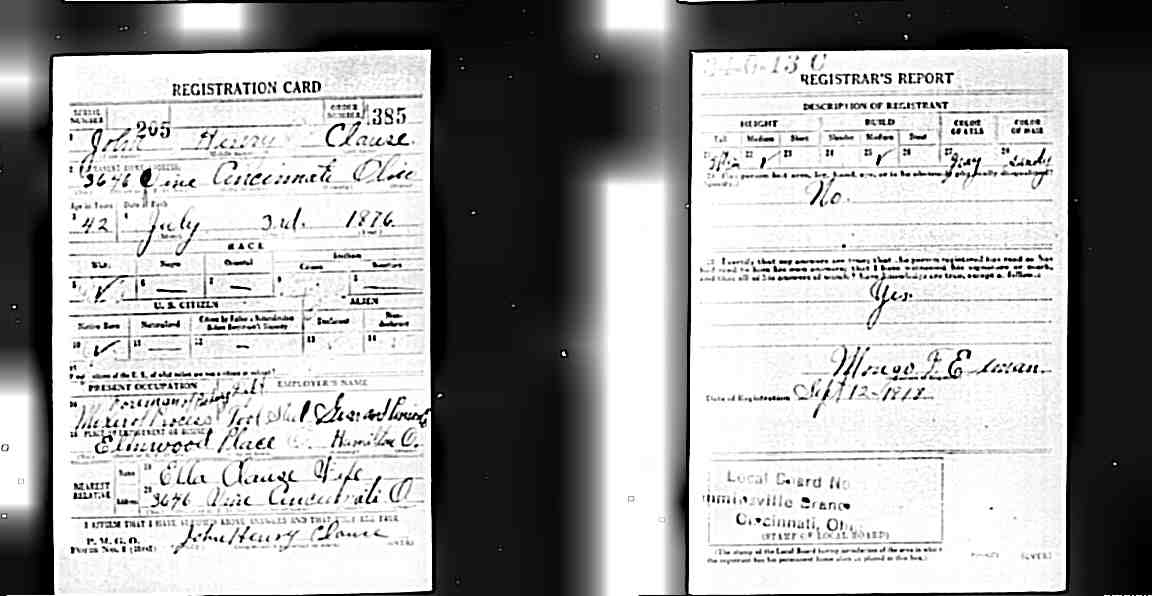 REGISTRATION CARD
SERIAL NUMBER 205
ORDER NUMBER 385
1 John Henry Clause
2 PERMANENT HOME ADDRESS
3646 Vine Cincinnati Ohio
Age in Years Date of Birth
3 42 4 July 3rd. 1876
RACE
White Negro Oriental Indian
Citizen
5 ✓ 6 — 7 — 8 9 —
U. S. CITIZEN ALIEN
Native Born Naturalized Citizen by Father's Naturalization Before Registrant's Majority Declarant Non-declarant
10 ✓ 11 — 12 — 13 14
15 If not a citizen of the U. S., of what nation are you a citizen or subject?
PRESENT OCCUPATION EMPLOYER'S NAME
16 Foreman of
Process Tool Stl.
18 PLACE OF EMPLOYMENT OR BUSINESS
Elmwood Place Hamilton O.
NEAREST RELATIVE
Name 19 Ella Clause Wife
Address 20 3646 Vine Cincinnati O
I AFFIRM THAT I HAVE VERIFIED ABOVE ANSWERS AND THAT THEY ARE TRUE
P. M. G. O.
Form No. 1 (Red) John Henry Clause (OVER)
C
REGISTRAR'S REPORT
DESCRIPTION OF REGISTRANT
HEIGHT BUILD COLOR OF EYES COLOR OF HAIR
Tall Medium Short Slender Medium Stout
21 22 ✓ 23 24 25 ✓ 26 27 Gray 28 Sandy
29 Has person lost arm, leg, hand, eye, or is he obviously physically disqualified?
(Specify.)
No.
30 I certify that my answers are true; that the person registered has read or has
had read to him his own answers; that I have witnessed his signature or mark,
and that all of his answers of which I have knowledge are true, except as follows:
Yes.
Date of Registration Sept 12-1918
Local Board No
Branch
Cincinnati, Ohio
(STAMP OF LOCAL BOARD)
(The stamp of the Local Board having jurisdiction of the area in which
the registrant has his permanent home shall be placed in this box.)
(OVER)